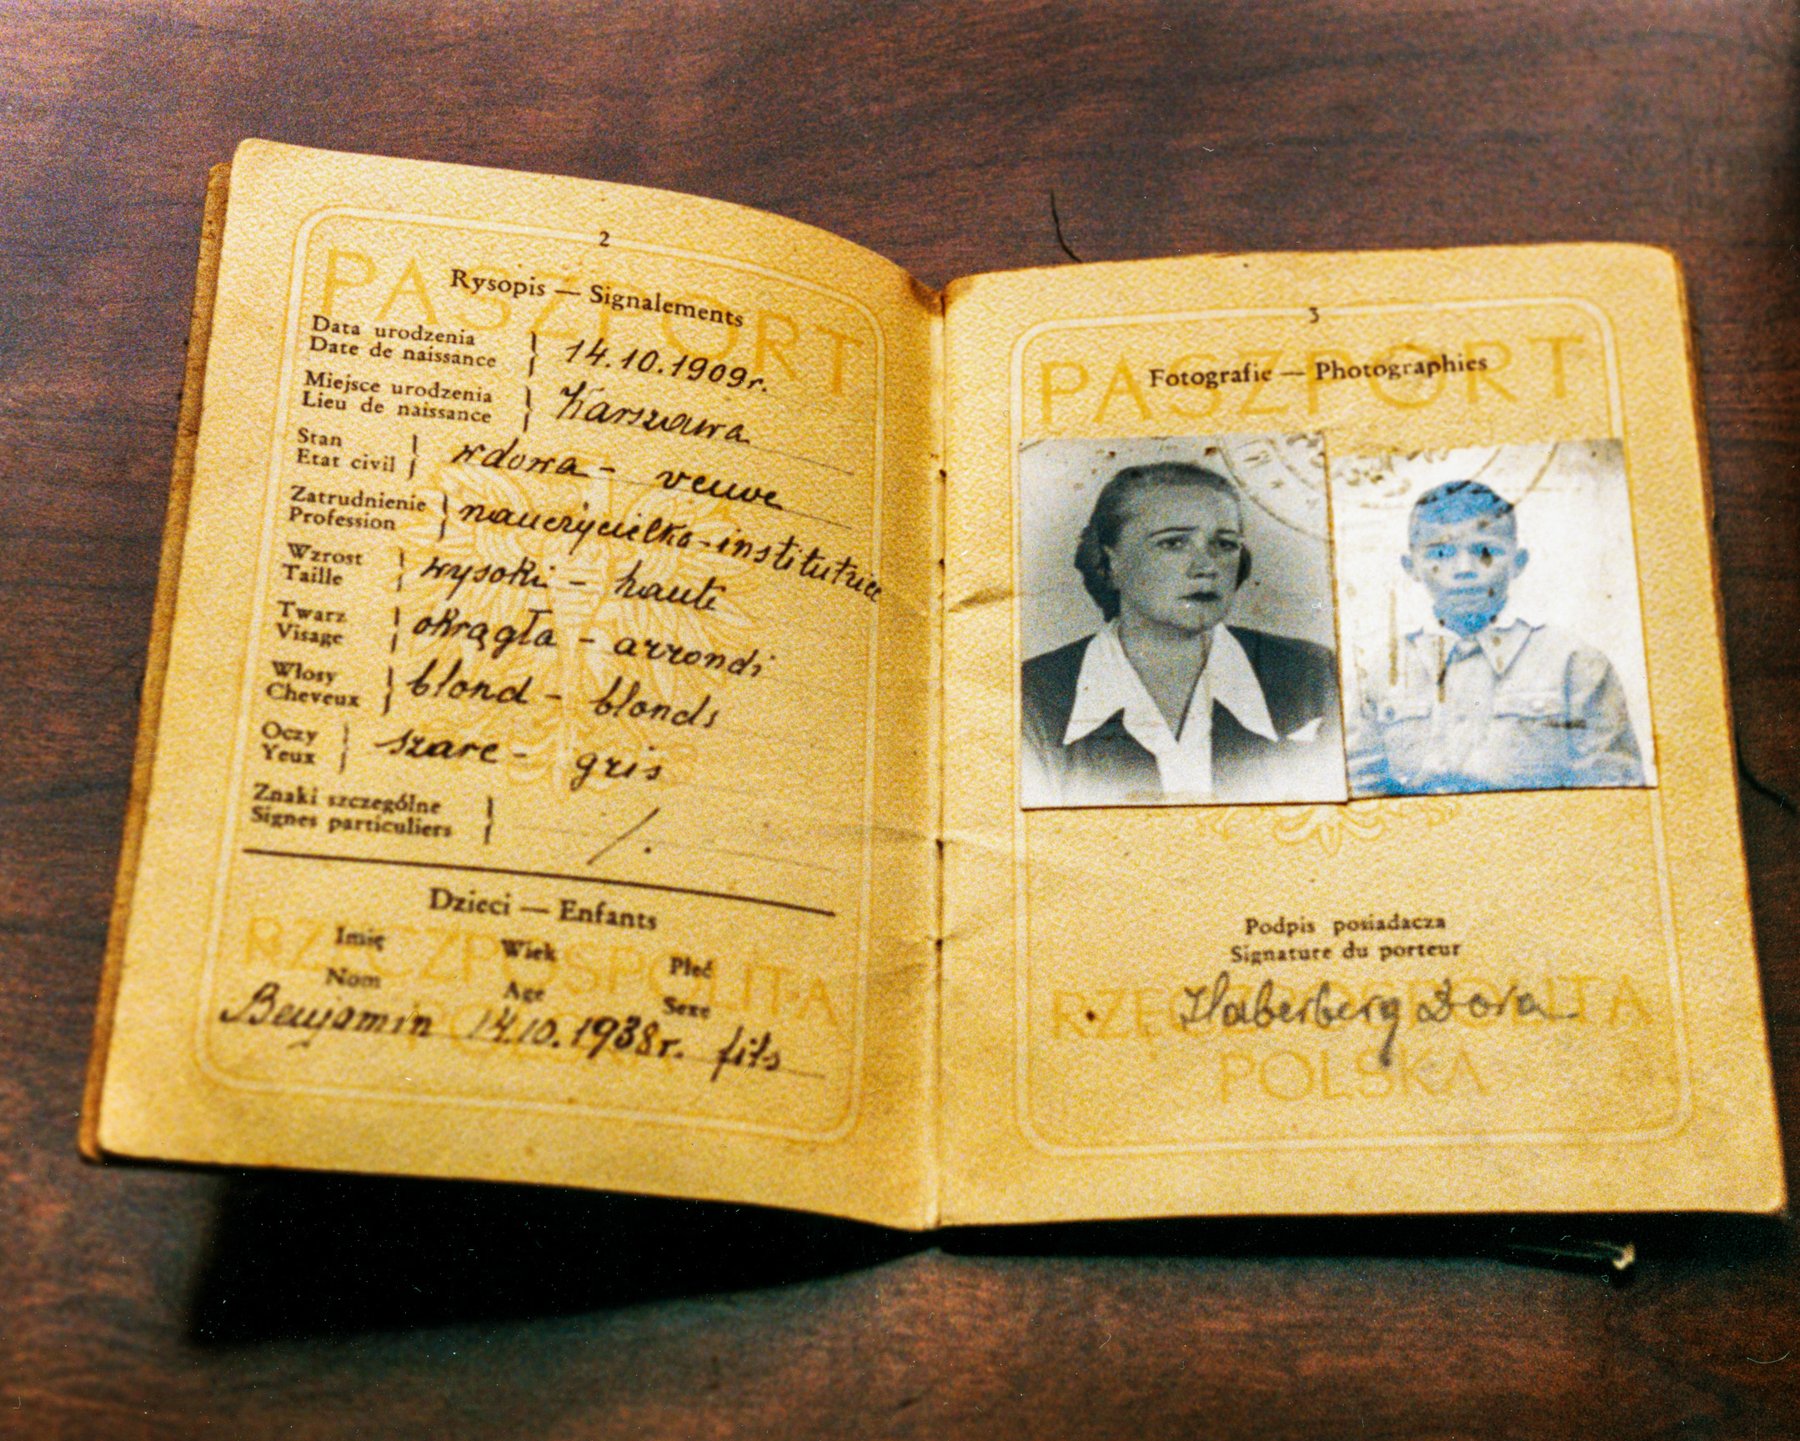 2
PASZPORT
Rysopis — Signalements
Data urodzenia
Date de naissance
14.10.1909r.
Miejsce urodzenia
Lieu de naissance
Warszawa
Stan
Etat civil
wdowa - veuve
Zatrudnienie
Profession
nauczycielka - institutrice
Wzrost
Taille
wysoki - haute
Twarz
Visage
okrągła - arrondi
Włosy
Cheveux
blond - blonds
Oczy
Yeux
szare - gris
Znaki szczególne
Signes particuliers
/.
Dzieci — Enfants
Imię Wiek Płeć
Nom Age Sexe
RZECZPOSPOLITA
POLSKA
Benjamin 14.10.1938r. fils
3
PASZPORT
Fotografie — Photographies
Podpis posiadacza
Signature du porteur
Haberberg Dora
RZECZPOSPOLITA
POLSKA